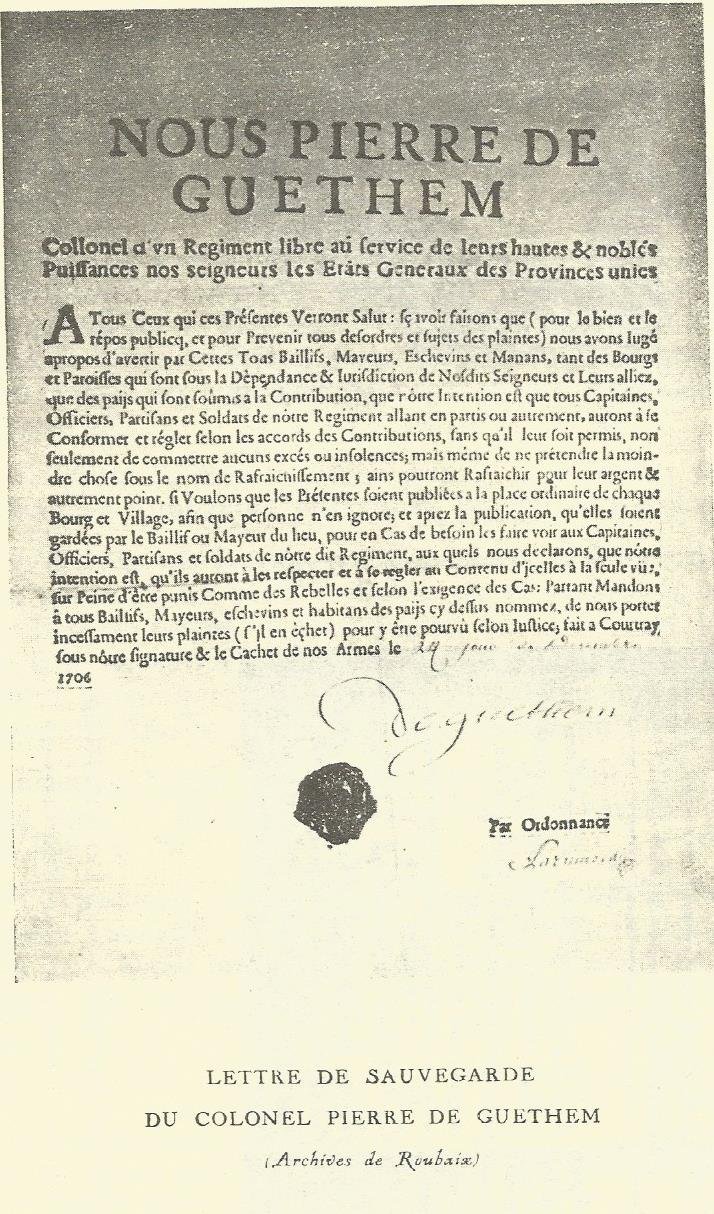 NOUS PIERRE DE
GUETHEM
Collonel d'vn Regiment libre aü ſervice de leurs hautes & nobles
Puiſſances nos seigneurs les Etâts Generaux des Provinces unies
A Tous Ceux qui ces Préſentes Verront Salut : ſçavoir faiſons que ( pour le bien et le
répos publicq, et pour Prevenir tous deſordres et ſujets des plaintes) nous avons Iugé
apropos d'avertir par Cettes Tous Baillifs, Mayeurs, Eschevins et Manans, tant des Bourgs
et Paroiſſes qui ſont ſous la Dèpendance & Iurisdiction de Noſdits Seigneurs et Leurs alliez,
que des païjs qui ſont ſoûmis a la Contribution, que nôtre Intention eſt que tous Capitaines,
Officiers, Partiſans et Soldats de nòtre Regiment allant en partis ou autrement, auront à ſe
Conformer et régler ſelon les accords des Contributions, ſans qu'il leur ſoit permis, non
ſeulement de commettre aucuns excés ou inſolences; mais même de ne prétendre la moin-
dre choſe sous le nom de Rafraichiſſement ; ains pourront Rafraichir pour leur argent &
autrement point. ſi Voulons que les Préſentes ſoient publiées a la place ordinaire de chaque
Bourg et Village, afin que perſonne n'en ignore; et aprez la publication, qu'elles ſoient
gardées par le Baillif ou Mayeur du lieu, pour en Cas de beſoin les faire voir aux Capitaines,
Officiers, Partiſans et soldats de nôtre dit Regiment, aux quels nous declarons, que nôtre
intention est, qu'ils auront à les reſpecter et à ſe regler au Contenu d'jcelles à la ſeule vüe,
ſur Peine d'être punis Comme des Rebelles et ſelon l'exigence des Cas: Partant Mandons
à tous Baillifs, Mayeurs, eſchevins et habitans des païjs cy deſſus nommez, de nous porter
inceſſament leurs plaintes ( ſ'il en èchet ) pour y être pourvû ſelon Iuſtice; fait a Courtray,
sous nôtre ſignature & le Cachet de nos Armes le 24 jour de
1706
de guethem
Par Ordonnance
LETTRE DE SAUVEGARDE
DU COLONEL PIERRE DE GUETHEM
(Archives de Roubaix)